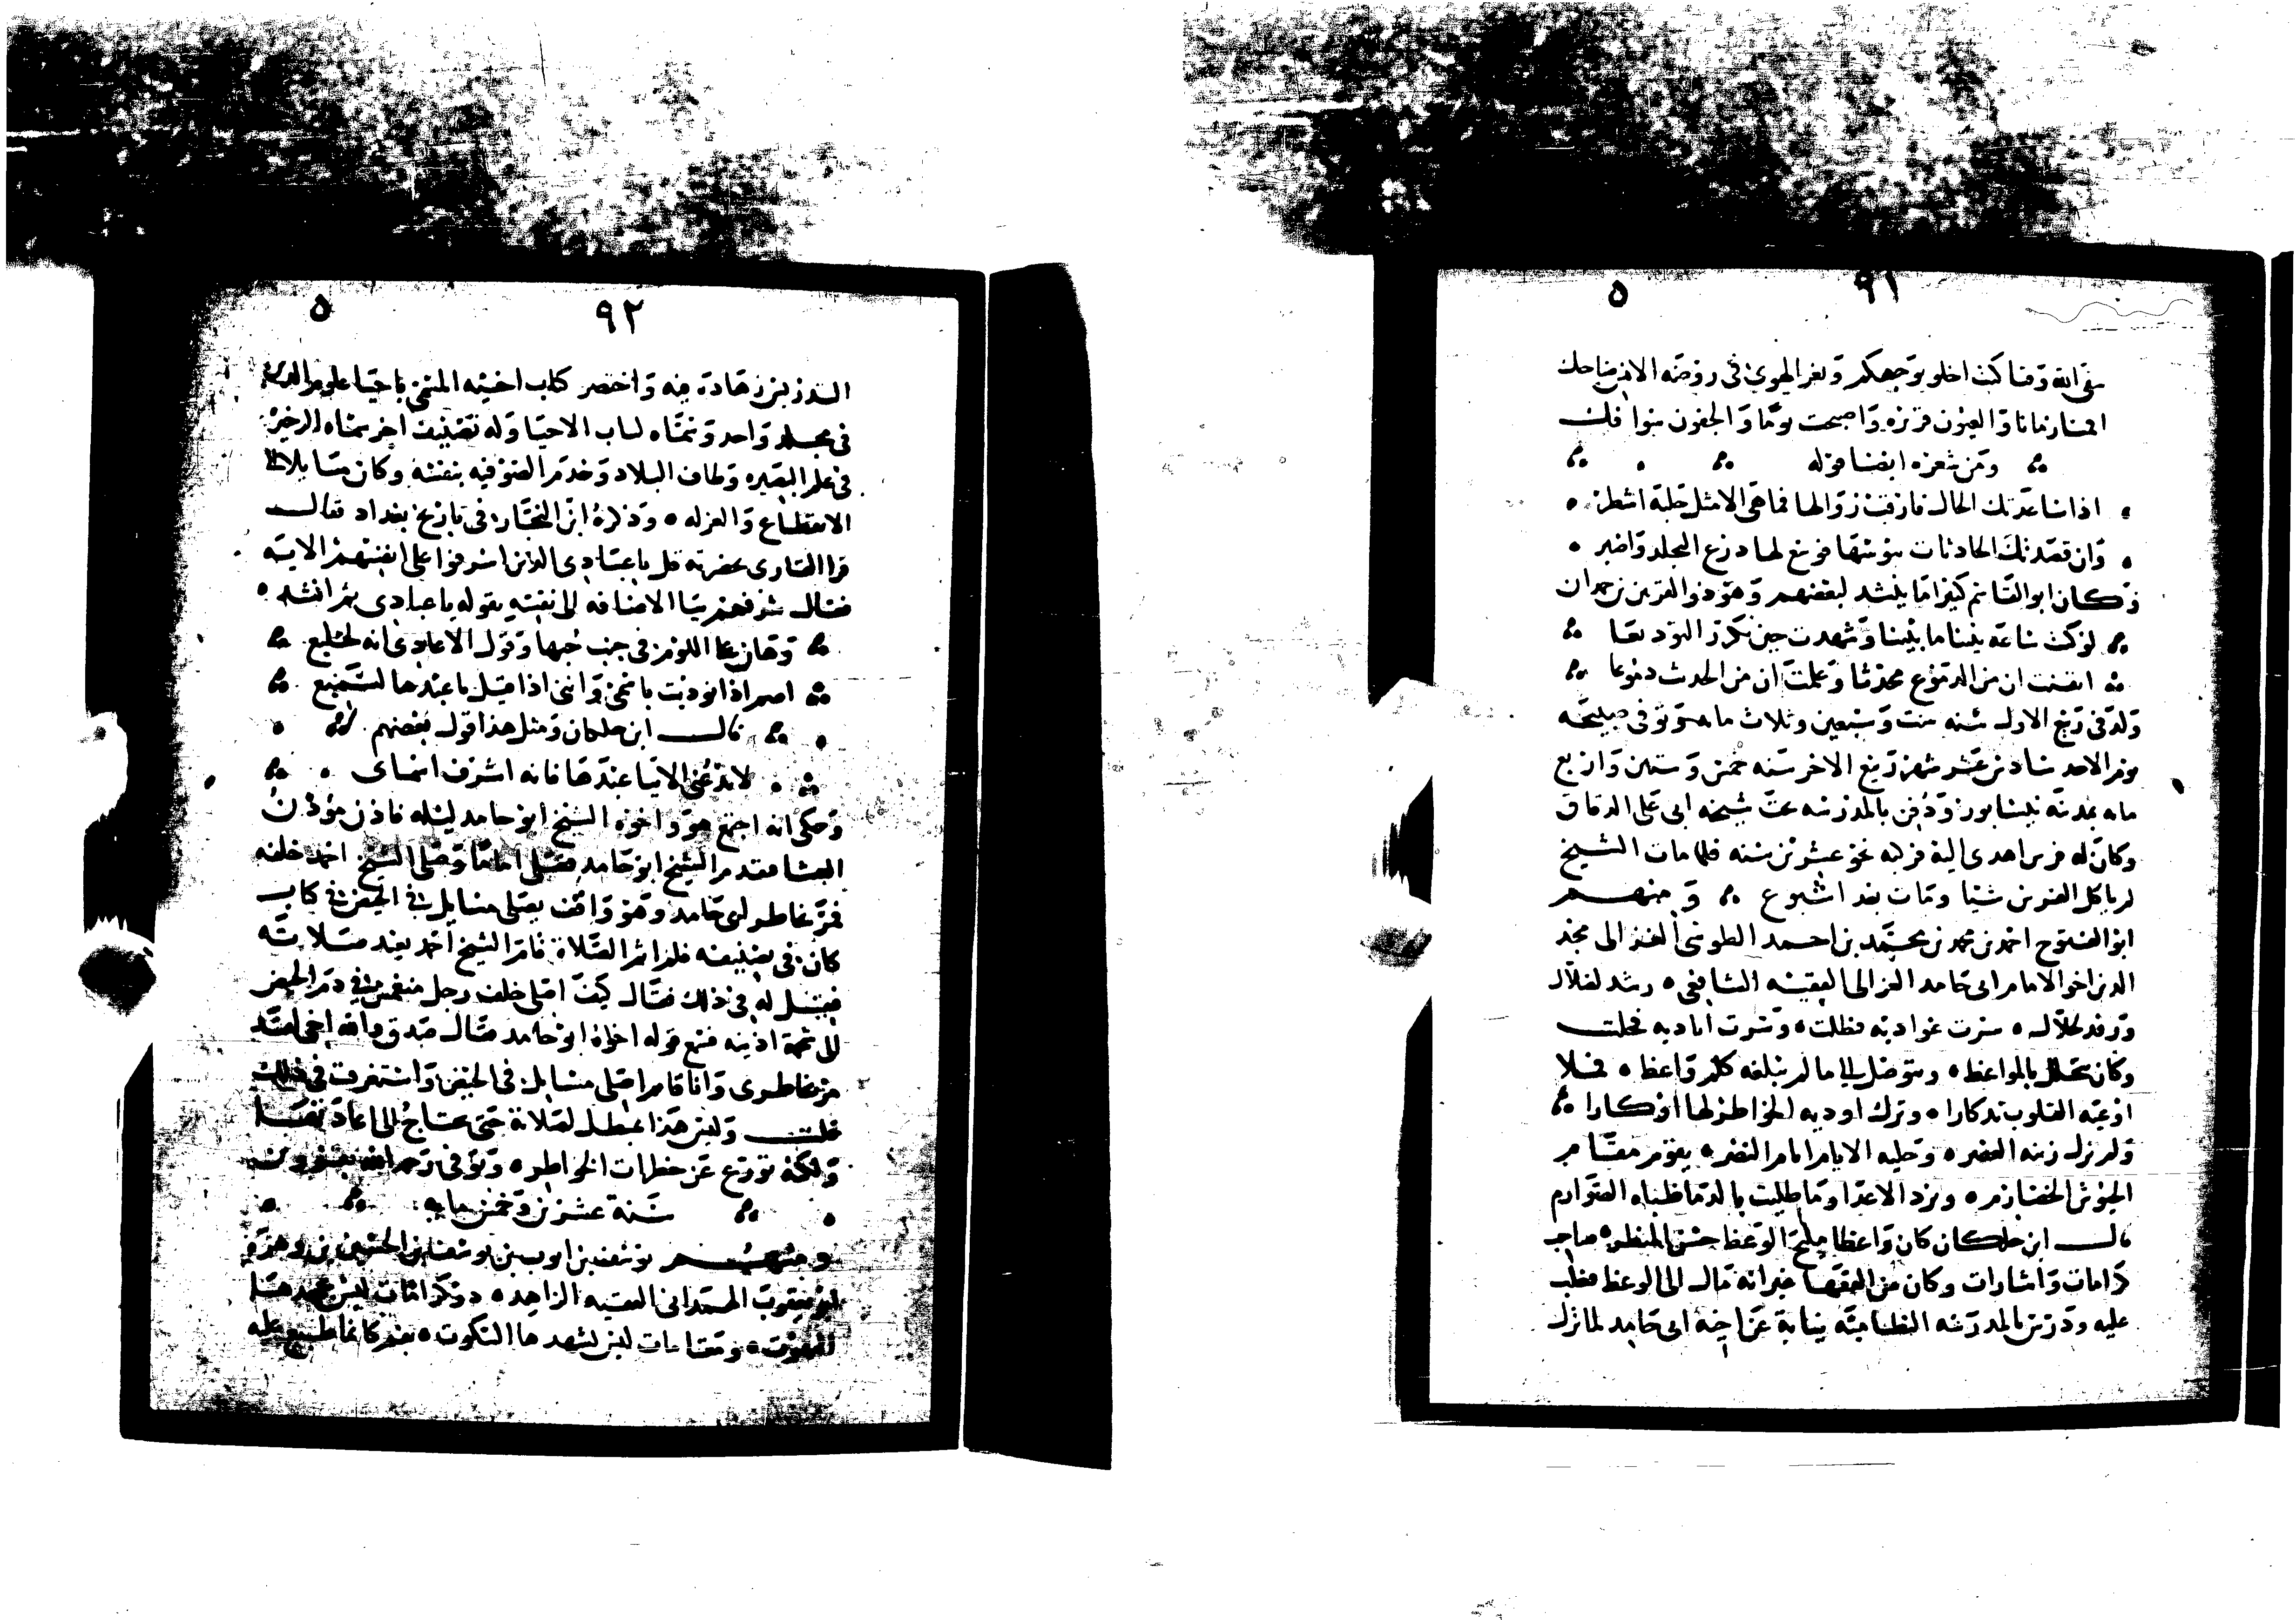 ٩١ ٥
سقى الله وقتا كنت اخلو بوجهكم وثغر الهوى فى روضة الانس ضاحك
اقمنا زمانا والعيون قريره واصبحت يوما والجفون سوافك
ومن شعره ايضا قوله
اذا ساعدتك الحال فارقب زوالها فما هى الا مثل حلبة اشطر
وان قصدتك الحادثات ببوسها فوسع لها درع التجلد واصبر
وكان ابو القاسم كثيرا ما ينشد لبعضهم وهو ذو القرنين بن حمدان
لو كنت ساعة بيننا ما بيننا وشهدت حين نكرر التوديعا
ايقنت ان من الدموع محدثا وعلمت ان من الحديث دموعا
ولد فى ربيع الاول سنه ست وسبعين وثلاث مايه وتوفى صبيحة
يوم الاحد سادس عشر شهر ربيع الاخر سنه خمس وستين واربع
مايه بمدينة نيسابور ودفن بالمدرسه تحت شيخه ابى على الدقاق
وكان له فرس اهدى اليه فركبه نحو عشرين سنه فلما مات الشيخ
لم ياكل الفرس شيئا ومات بعد اسبوع ومنهم
ابو الفتوح احمد بن محمد بن محمد بن احمد الطوسى الغزالى مجد
الدين اخو الامام ابى حامد الغزالى الفقيه الشافعى
وكان بالمواعظ ويتوصل الى ما لم يبلغه كلم واعظ
اوعية القلوب تذكارا وترك اودية الخواطر لها اوكارا
ولم يزل زينه العصر وحليه الايام يقوم مقام
الجيوش الخضارم ويرد الاعدا وما طليت بالدما ظباه الصوارم
قال ابن خلكان كان واعظا مليح الوعظ حسن المنظر صاحب
كرامات واشارات وكان من الفقها غير انه مال الى الوعظ فغلب
عليه ودرس بالمدرسه النظاميه نيابة عن اخيه ابى حامد لما ترك
٩٢ ٥
التدريس زهادة فيه واختصر كتاب اخيه المسمى باحيا علوم الدين
فى مجلد واحد وسماه لباب الاحيا وله تصنيف اخر سماه الذخيره
فى علم البصيره وطاف البلاد وخدم الصوفيه بنفسه وكان مايلا الى
الانقطاع والعزله وذكره ابن النجار فى تاريخ بغداد فقال
قرا القارى بحضرته قل يا عبادى الذين اسرفوا على انفسهم الايه
فقال شرفهم بيا الاضافه الى نفسه بقوله يا عبادى ثم انشد
وهان على اللوم فى جنب حبها وقول الاعادى انه لخليع
اصم اذا نوديت باسمى واننى اذا قيل يا عبدها لسميع
قال ابن خلكان ومثل هذا قول بعضهم
لا تدعنى الا بيا عبدها فانه اشرف اسماى
وحكى انه اجتمع هو واخوه الشيخ ابو حامد ليله فاذن موذن
العشا فتقدم الشيخ ابو حامد فصلى اماما وصلى الشيخ احمد خلفه
فمر بخاطر ابى حامد وهو واقف يصلى مسايل فى الحيض فى كتاب
كان فى تصنيفه فلما اتم الصلاة قام الشيخ احمد يعيد صلاته
فقيل له فى ذلك فقال كيف اصلى خلف رجل منغمس فى دم الحيض
الى شحمة اذنيه فسمع قوله اخوه ابو حامد فقال صدق والله اخى لقد
مر بخاطرى وانا قايم اصلى مسايل فى الحيض واستغرقت فى ذلك
قلت وليس هذا مبطل لصلاته حتى يحتاج الى اعادتها
ولكنه تورع عن خطرات الخواطر وتوفى رحمه الله بقزوين
سنة عشرين وخمس مايه
ومنهم يوسف بن ايوب بن يوسف بن الحسين بن وهرة
ابو يعقوب الهمدانى الفقيه الزاهد ذو كرامات ليس
ومقامات ليس لشهدها السكوت